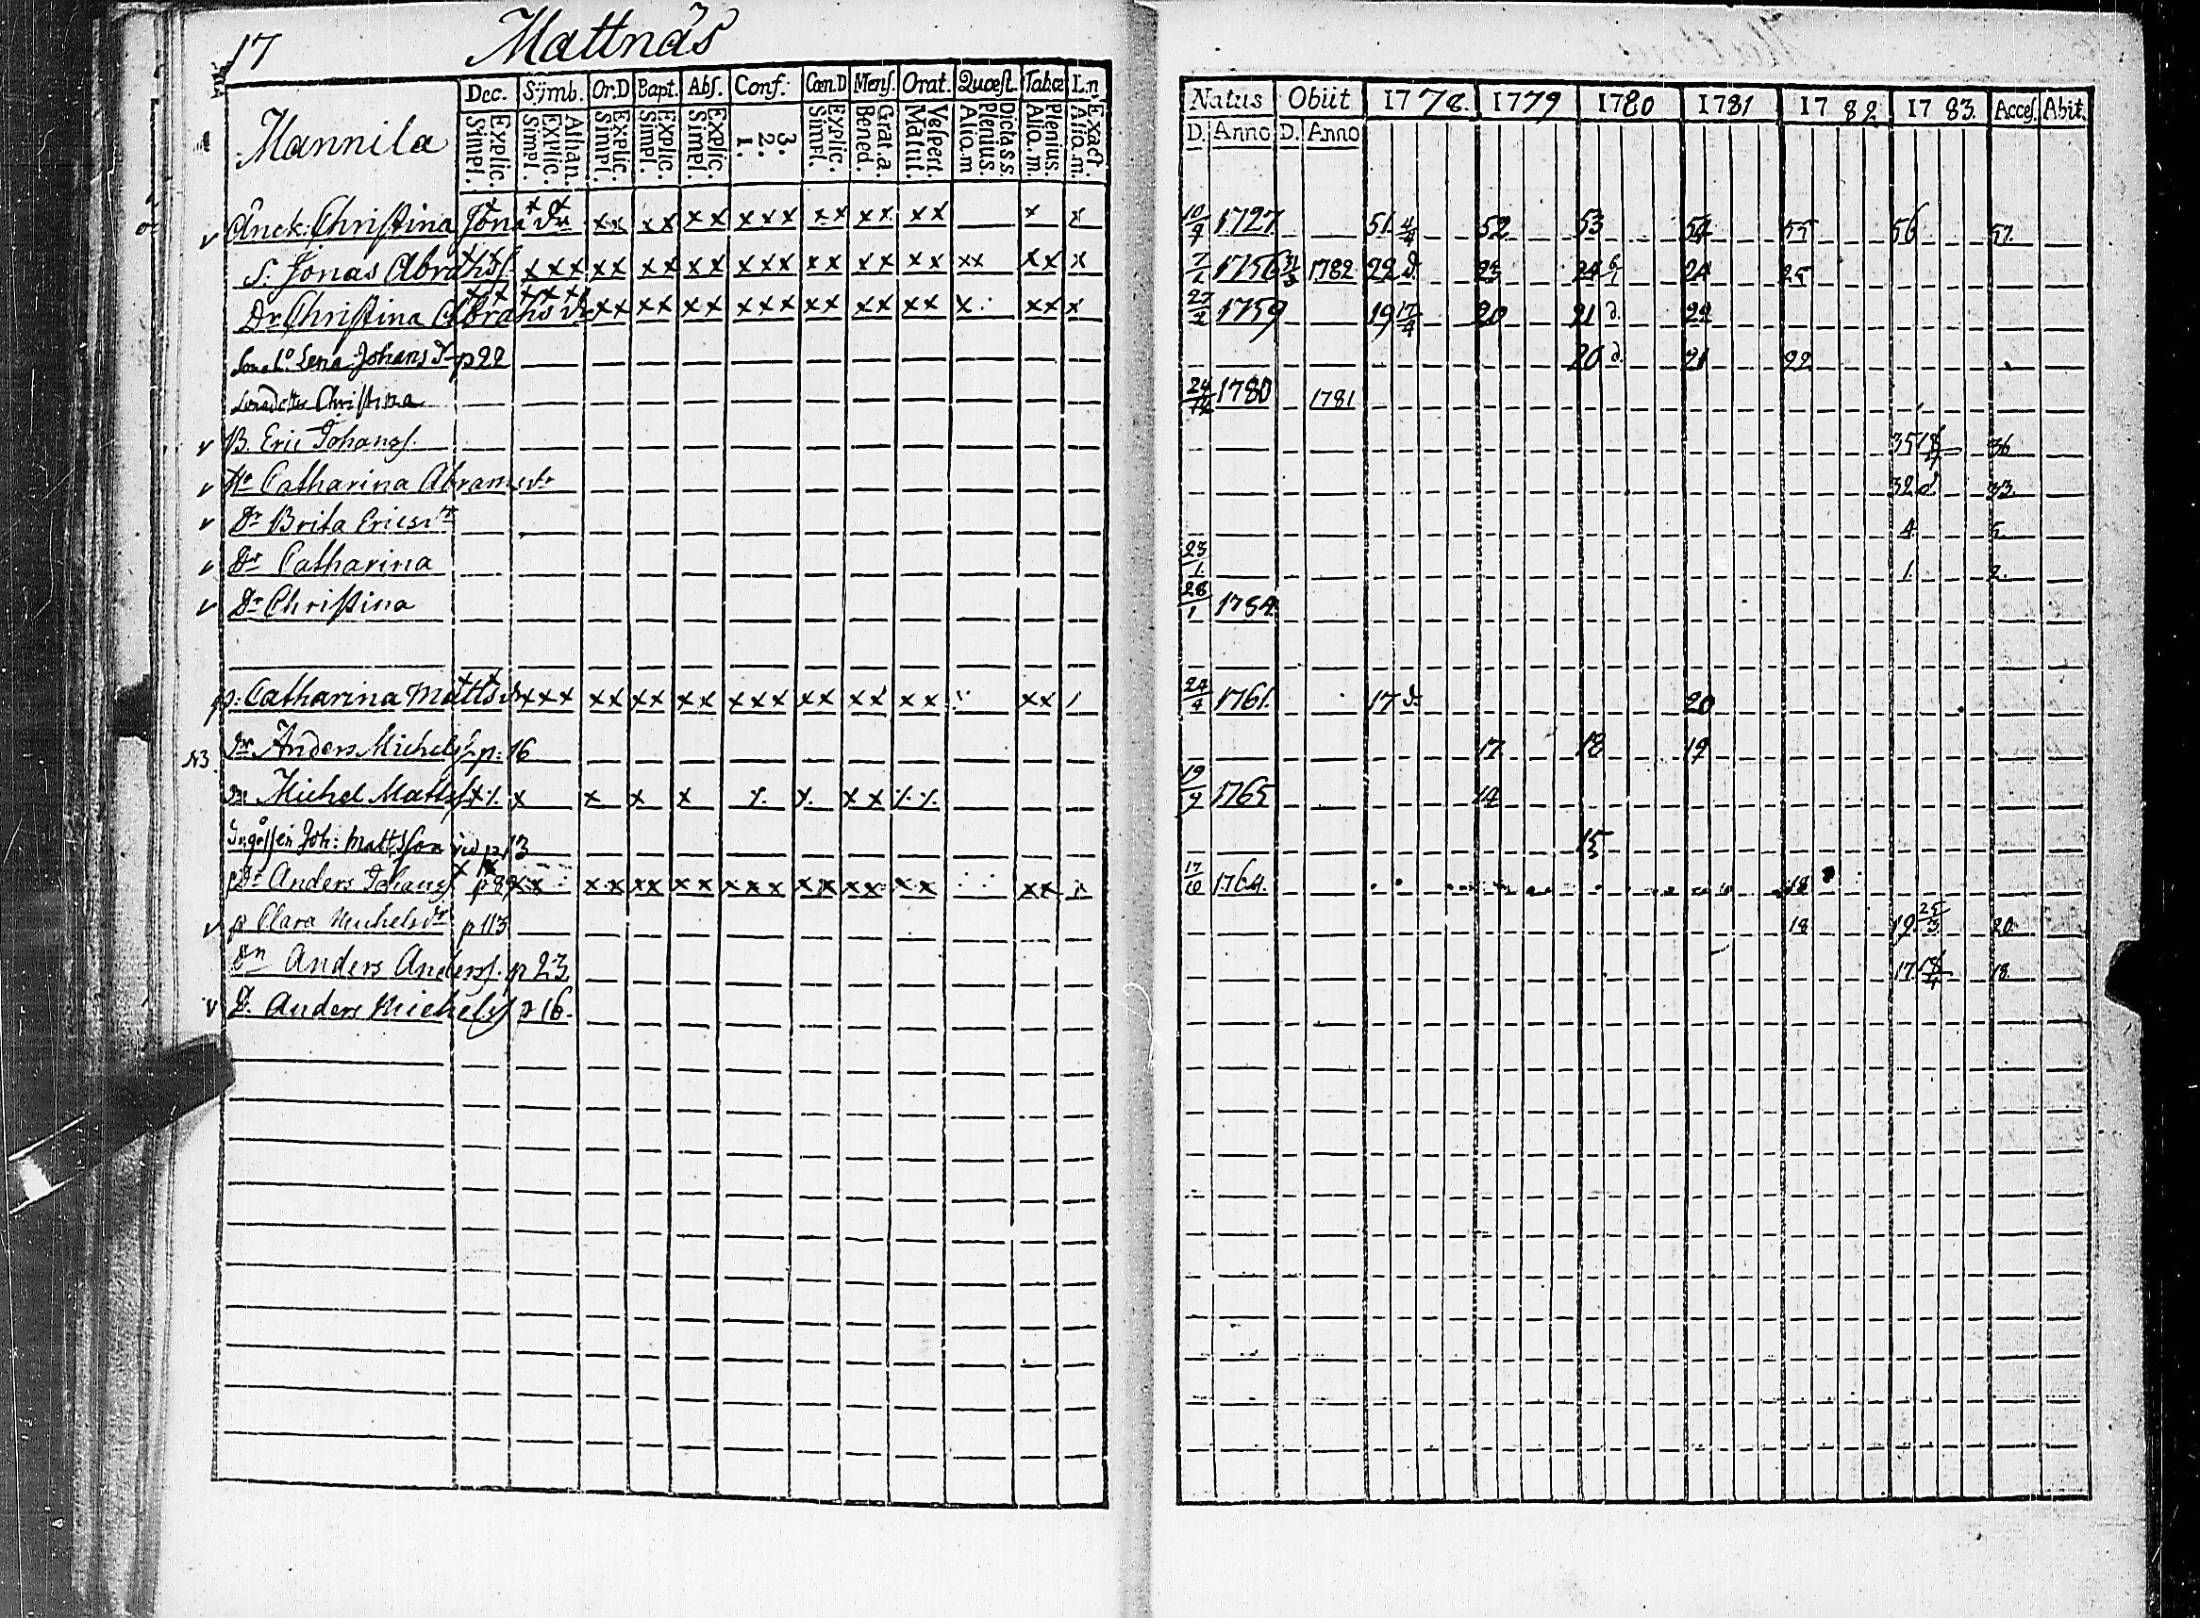 17 Mattnäs
Dec. Sijmb. Or.D Bapt. Abs. Conf: Cœn.D Mens. Orat. Quœst. Tabœ L.n
Mannila Explic. Simpl. Athan. Explic. Simpl. Explic. Simpl. Explic. Simpl. Explic. Simpl. 3. 2. 1. Explic. Simpl. Grat.a. Bened. Vespert. Matut. Dicta s.s. Plenius. Alio.m Plenius. Alio.m. Exact. Alio.m.
Natus Obiit 1778. 1779 1780 1781 1782 1783. Acces. Abit.
D. Anno D. Anno
v Änck: Christina Jonsdr xx xx xx xxx xx xx xx x x 10/9 1727 51 4/4 52 53 54 55 56 57.
S. Jonas Abrahsf. xxx xx xx xx xxx xx xx xx xx xx x 1756 1782 22 d. 23 24 24 25
Dr Christina Abrahsdr xx xx xx xxx xx xx xx x xx x 1759 19 17/4 20 21 d. 22
Lena Johansd p 22 20 d. 21 22
Christina 24/12 1780 1781
v B. Eric Johansf. 35 36
v Hu Catharina Abramsdr 32 d. 33.
v Dr Brita Ericsdr 4 5
v Dr Catharina 23/1 1. 2.
v Dr Christina 28/1 1784.
p: Catharina Mattsdr xxx xx xx xx xxx xx xx xx xx 24/4 1761. 17 d. 20
Anders Michelsf p: 16 17. 18 19
Michel Mattsf x x x x x x x x 19/9 1765 14
Joh: Mattsson vid p 13 15
Dr Anders Johansf. p 89 xx xx xx xx xxx xx xx xx xx x 17/10 1764. 18
v p Clara Michelsdr p 113 18 19. 25/3 20
Dn Anders Andersf. p 23. 17 18.
v D. Anders Michelsf p 16.